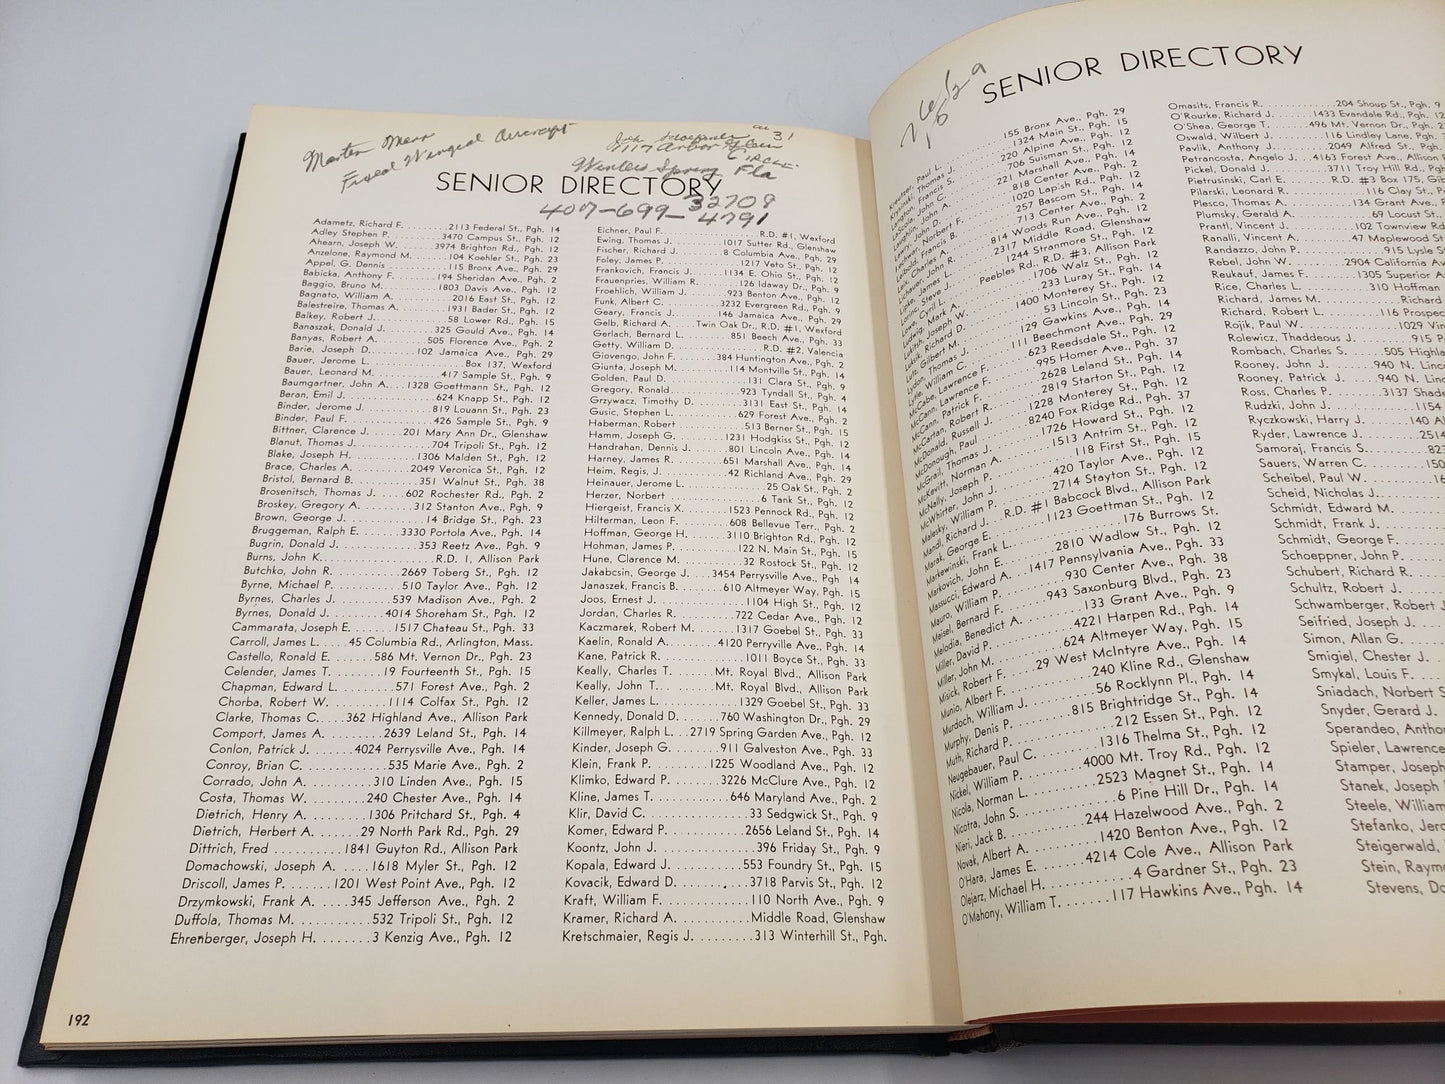 Fixed Winged Aircraft
31
7117 Arbor Glen
CIRCLE
Winters Spring Fla
32708
407-699-4791
SENIOR DIRECTORY
Adametz, Richard F. 2113 Federal St., Pgh. 14
Adley Stephen P. 3470 Campus St., Pgh. 12
Ahearn, Joseph W. 3974 Brighton Rd., Pgh. 12
Anzelone, Raymond M. 104 Koehler St., Pgh. 23
Appel, G. Dennis 115 Bronx Ave., Pgh. 29
Babicka, Anthony F. 194 Sheridan Ave., Pgh. 2
Baggio, Bruno M. 1803 Davis Ave., Pgh. 12
Bagnato, William A. 2016 East St., Pgh. 12
Balestreire, Thomas A. 1931 Bader St., Pgh. 12
Balkey, Robert J. 58 Lower Rd., Pgh. 15
Banaszak, Donald J. 325 Gould Ave., Pgh. 14
Banyas, Robert A. 505 Florence Ave., Pgh. 2
Barie, Joseph D. 102 Jamaica Ave., Pgh. 29
Bauer, Jerome L. Box 137, Wexford
Bauer, Leonard M. 417 Sample St., Pgh. 9
Baumgartner, John A. 1328 Goettmann St., Pgh. 12
Beran, Emil J. 624 Knapp St., Pgh. 12
Binder, Jerome J. 819 Louann St., Pgh. 23
Binder, Paul F. 426 Sample St., Pgh. 9
Bittner, Clarence J. 201 Mary Ann Dr., Glenshaw
Blanut, Thomas J. 704 Tripoli St., Pgh. 12
Blake, Joseph H. 1306 Malden St., Pgh. 12
Brace, Charles A. 2049 Veronica St., Pgh. 12
Bristol, Bernard B. 351 Walnut St., Pgh. 38
Brosenitsch, Thomas J. 602 Rochester Rd., Pgh. 2
Broskey, Gregory A. 312 Stanton Ave., Pgh. 9
Brown, George J. 14 Bridge St., Pgh. 23
Bruggeman, Ralph E. 3330 Portola Ave., Pgh. 14
Bugrin, Donald J. 353 Reetz Ave., Pgh. 9
Burns, John K. R.D. 1, Allison Park
Butchko, John R. 2669 Toberg St., Pgh. 12
Byrne, Michael P. 510 Taylor Ave., Pgh. 12
Byrnes, Charles J. 539 Madison Ave., Pgh. 2
Byrnes, Donald J. 4014 Shoreham St., Pgh. 12
Cammarata, Joseph E. 1517 Chateau St., Pgh. 33
Carroll, James L. 45 Columbia Rd., Arlington, Mass.
Castello, Ronald E. 586 Mt. Vernon Dr., Pgh. 23
Celender, James T. 19 Fourteenth St., Pgh. 15
Chapman, Edward L. 571 Forest Ave., Pgh. 2
Chorba, Robert W. 1114 Colfax St., Pgh. 12
Clarke, Thomas C. 362 Highland Ave., Allison Park
Comport, James A. 2639 Leland St., Pgh. 14
Conlon, Patrick J. 4024 Perrysville Ave., Pgh. 14
Conroy, Brian C. 535 Marie Ave., Pgh. 2
Corrado, John A. 310 Linden Ave., Pgh. 15
Costa, Thomas W. 240 Chester Ave., Pgh. 14
Dietrich, Henry A. 1306 Pritchard St., Pgh. 4
Dietrich, Herbert A. 29 North Park Rd., Pgh. 29
Dittrich, Fred 1841 Guyton Rd., Allison Park
Domachowski, Joseph A. 1618 Myler St., Pgh. 12
Driscoll, James P. 1201 West Point Ave., Pgh. 12
Drzymkowski, Frank A. 345 Jefferson Ave., Pgh. 2
Duffola, Thomas M. 532 Tripoli St., Pgh. 12
Ehrenberger, Joseph H. 3 Kenzig Ave., Pgh. 12
Eichner, Paul F. R.D. #1, Wexford
Ewing, Thomas J. 1017 Sutter Rd., Glenshaw
Fischer, Richard J. 8 Columbia Ave., Pgh. 29
Foley, James P. 1217 Veto St., Pgh. 12
Frankovich, Francis J. 1134 E. Ohio St., Pgh. 12
Frauenpries, William R. 126 Idaway Dr., Pgh. 9
Froehlich, William J. 923 Benton Ave., Pgh. 12
Funk, Albert C. 3232 Evergreen Rd., Pgh. 9
Geary, Francis J. 146 Jamaica Ave., Pgh. 29
Gelb, Richard A. Twin Oak Dr., R.D. #1, Wexford
Gerlach, Bernard L. 851 Beech Ave., Pgh. 33
Getty, William D. R.D. #2, Valencia
Giovengo, John F. 384 Huntington Ave., Pgh. 2
Giunta, Joseph M. 114 Montville St., Pgh. 14
Golden, Paul D. 131 Clara St., Pgh. 9
Gregory, Ronald 923 Tyndall St., Pgh. 4
Grzywacz, Timothy D. 3131 East St., Pgh. 14
Gusic, Stephen L. 629 Forest Ave., Pgh. 2
Haberman, Robert 513 Berner St., Pgh. 15
Hamm, Joseph G. 1231 Hodgkiss St., Pgh. 12
Handrahan, Dennis J. 801 Lincoln Ave., Pgh. 14
Harney, James R. 651 Marshall Ave., Pgh. 14
Heim, Regis, J. 42 Richland Ave., Pgh. 29
Heinauer, Jerome L. 25 Oak St., Pgh. 2
Herzer, Norbert 6 Tank St., Pgh. 12
Hiergeist, Francis X. 1523 Pennock Rd., Pgh. 12
Hilterman, Leon F. 608 Bellevue Terr., Pgh. 2
Hoffman, George H. 3110 Brighton Rd., Pgh. 12
Hohman, James P. 122 N. Main St., Pgh. 15
Hune, Clarence M. 32 Rostock St., Pgh. 12
Jakabcsin, George J. 3454 Perrysville Ave., Pgh 14
Janaszek, Francis B. 610 Altmeyer Way, Pgh. 15
Joos, Ernest J. 1104 High St., Pgh. 12
Jordan, Charles R. 722 Cedar Ave., Pgh. 12
Kaczmarek, Robert M. 1317 Goebel St., Pgh. 33
Kaelin, Ronald A. 4120 Perryville Ave., Pgh. 14
Kane, Patrick R. 1011 Boyce St., Pgh. 33
Keally, Charles T. Mt. Royal Blvd., Allison Park
Keally, John T. Mt. Royal Blvd., Allison Park
Keller, James L. 1329 Goebel St., Pgh. 33
Kennedy, Donald D. 760 Washington Dr., Pgh. 29
Killmeyer, Ralph L. 2719 Spring Garden Ave., Pgh. 12
Kinder, Joseph G. 911 Galveston Ave., Pgh. 33
Klein, Frank P. 1225 Woodland Ave., Pgh. 12
Klimko, Edward P. 3226 McClure Ave., Pgh. 12
Kline, James T. 646 Maryland Ave., Pgh. 2
Klir, David C. 33 Sedgwick St., Pgh. 9
Komer, Edward P. 2656 Leland St., Pgh. 14
Koontz, John J. 396 Friday St., Pgh. 9
Kopala, Edward J. 553 Foundry St., Pgh. 15
Kovacik, Edward D. 3718 Parvis St., Pgh. 12
Kraft, William F. 110 North Ave., Pgh. 9
Kramer, Richard A. Middle Road, Glenshaw
Kretschmaier, Regis J. 313 Winterhill St., Pgh.
192
SENIOR DIRECTORY
155 Bronx Ave., Pgh. 29
1324 Main St., Pgh. 15
220 Alpine Ave., Pgh. 12
706 Suisman St., Pgh. 12
221 Marshall Ave., Pgh. 14
818 Center Ave., Pgh. 2
1020 Lapish Rd., Pgh. 12
257 Bascom St., Pgh. 14
713 Center Ave., Pgh. 2
814 Woods Run Ave., Pgh. 12
2317 Middle Road, Glenshaw
1244 Stranmore St., Pgh. 12
Peebles Rd., R.D. #3, Allison Park
1706 Walz St., Pgh. 12
233 Luray St., Pgh. 14
1400 Monterey St., Pgh. 12
53 Lincoln St., Pgh. 23
129 Gawkins Ave., Pgh. 14
111 Beechmont Ave., Pgh. 29
623 Reedsdale St., Pgh. 12
McCabe, Lawrence F. 995 Homer Ave., Pgh. 37
McCann, Lawrence F. 2628 Leland St., Pgh. 14
McCann, Patrick F. 2819 Starton St., Pgh. 12
McCartan, Robert R. 1228 Monterey St., Pgh. 12
McDonald, Russell J. 8240 Fox Ridge Rd., Pgh. 37
McDonough, Paul 1726 Howard St., Pgh. 12
McGrail, Thomas J. 1513 Antrim St., Pgh. 12
McKevitt, Norman A. 118 First St., Pgh. 15
McNally, Joseph P. 420 Taylor Ave., Pgh. 12
McWhirter, John J. 2714 Stayton St., Pgh. 12
Malesky, William P. R.D. #1 Babcock Blvd., Allison Park
Mandl, Richard J. 1123 Goettman St., Pgh. 12
Marak, George E. 176 Burrows St.
Markewinski, Frank L. 2810 Wadlow St., Pgh. 12
Markovich, John E. 1417 Pennsylvania Ave., Pgh. 33
Massucci, Edward A. 930 Center Ave., Pgh. 38
Mauro, William P. 943 Saxonburg Blvd., Pgh. 23
Meisel, Bernard F. 133 Grant Ave., Pgh. 9
Melodia, Benedict A. 4221 Harpen Rd., Pgh. 14
Miller, David P. 624 Altmeyer Way, Pgh. 15
Miller, John M. 29 West McIntyre Ave., Pgh. 14
Misick, Robert F. 240 Kline Rd., Glenshaw
Munio, Albert F. 56 Rocklynn Pl., Pgh. 14
Murdoch, William J. 815 Brightridge St., Pgh. 14
Murphy, Denis P. 212 Essen St., Pgh. 12
Muth, Richard P. 1316 Thelma St., Pgh. 12
Neugebauer, Paul C. 4000 Mt. Troy Rd., Pgh. 12
Nickel, William P. 2523 Magnet St., Pgh. 14
Nicola, Norman L. 6 Pine Hill Dr., Pgh. 14
Nicotra, John S. 244 Hazelwood Ave., Pgh. 2
Nieri, Jack B. 1420 Benton Ave., Pgh. 12
Novak, Albert A. 4214 Cole Ave., Allison Park
O'Hara, James E. 4 Gardner St., Pgh. 23
Olejarz, Michael H. 117 Hawkins Ave., Pgh. 14
O'Mahony, William T.
Omasits, Francis R. 204 Shoup St., Pgh. 9
O'Rourke, Richard J. 1433 Evandale Rd., Pgh. 12
O'Shea, George T. 496 Mt. Vernon Dr., Pgh. 2
Oswald, Wilbert J. 116 Lindley Lane, Pgh.
Pavlik, Anthony J. 2049 Alfred St., Pgh.
Petrancosta, Angelo J. 4163 Forest Ave., Allison
Pickel, Donald J. 3711 Troy Hill Rd., Pgh
Pietrusinski, Carl E. R.D. #3 Box 175, Gib
Pilarski, Leonard R. 116 Clay St., P
Plesco, Thomas A. 134 Grant Ave.,
Plumsky, Gerald A. 69 Locust St.,
Prantl, Vincent J. 102 Townview Rd
Ranalli, Vincent A. 47 Maplewood St
Randazzo, John P. 915 Lysle S
Rebel, John W. 2904 California Av
Reukauf, James F. 1305 Superior A
Rice, Charles L. 310 Hoffman
Richard, James M. Richard
Richard, Robert L. 116 Prospec
Rojik, Paul W. 1029 Vin
Rolewicz, Thaddeous J. 915 P
Rombach, Charles S. 505 Highla
Rooney, John J. 940 N. Linc
Rooney, Patrick J. 940 N. Linc
Ross, Charles P. 3137 Shade
Rudzki, John J. 1154
Ryczkowski, Harry J. 140 Al
Ryder, Lawrence J. 2514
Samoraj, Francis S. 823
Sauers, Warren C. 150
Scheibel, Paul W. 16
Scheid, Nicholas J.
Schmidt, Edward M.
Schmidt, Frank J.
Schmidt, George F.
Schoeppner, John P.
Schubert, Richard R.
Schultz, Robert J.
Schwamberger, Robert J
Seifried, Joseph J.
Simon, Allan G.
Smigiel, Chester J.
Smykal, Louis F.
Sniadach, Norbert S
Snyder, Gerard J.
Sperandeo, Anthon
Spieler, Lawrence
Stamper, Joseph
Stanek, Joseph
Steele, William
Stefanko, Jero
Steigerwald,
Stein, Raym
Stevens, Do